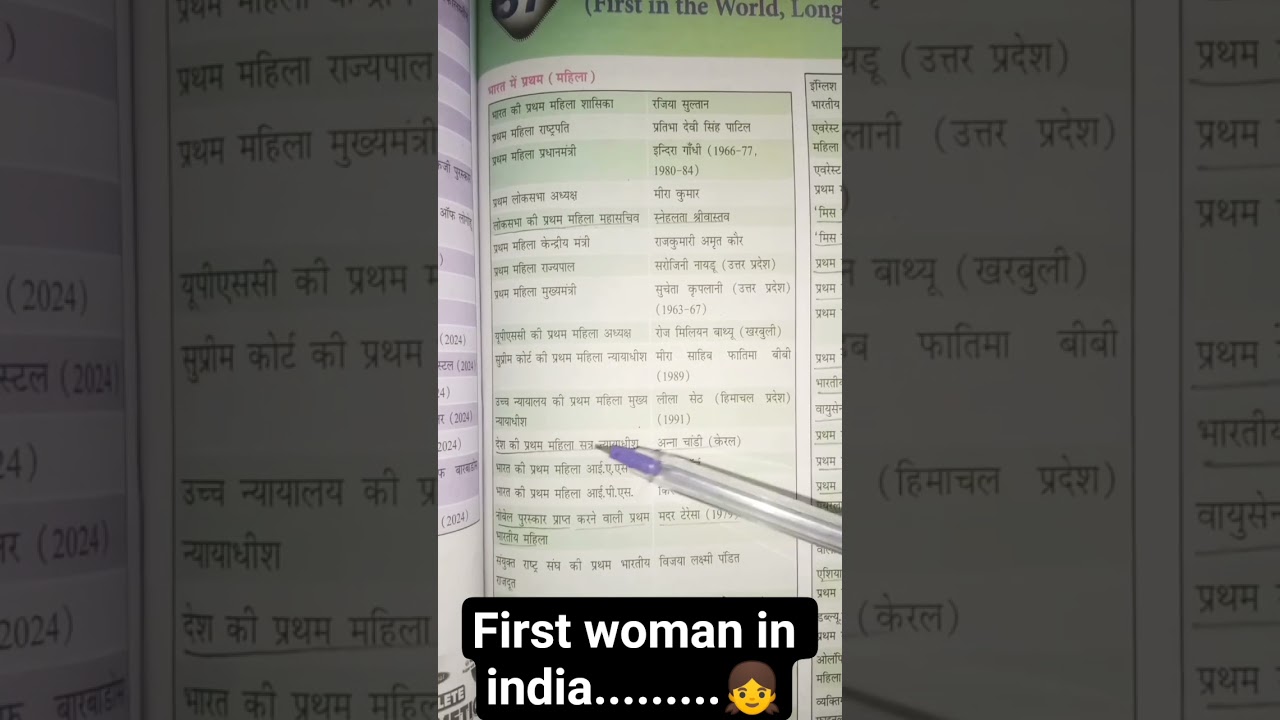 57
(First in the World, Long
भारत में प्रथम (महिला)
भारत की प्रथम महिला शासिका रजिया सुल्तान
प्रथम महिला राष्ट्रपति प्रतिभा देवी सिंह पाटिल
प्रथम महिला प्रधानमंत्री इन्दिरा गाँधी (1966-77,
1980-84)
प्रथम लोकसभा अध्यक्ष मीरा कुमार
लोकसभा की प्रथम महिला महासचिव स्नेहलता श्रीवास्तव
प्रथम महिला केन्द्रीय मंत्री राजकुमारी अमृत कौर
प्रथम महिला राज्यपाल सरोजिनी नायडू (उत्तर प्रदेश)
प्रथम महिला मुख्यमंत्री सुचेता कृपलानी (उत्तर प्रदेश)
(1963-67)
यूपीएससी की प्रथम महिला अध्यक्ष रोज मिलियन बाथ्यू (खरबुली)
सुप्रीम कोर्ट की प्रथम महिला न्यायाधीश मीरा साहिब फातिमा बीबी
(1989)
उच्च न्यायालय की प्रथम महिला मुख्य लीला सेठ (हिमाचल प्रदेश)
न्यायाधीश (1991)
देश की प्रथम महिला सत्र न्यायाधीश अन्ना चांडी (केरल)
भारत की प्रथम महिला आई.ए.एस
भारत की प्रथम महिला आई.पी.एस.
नोबेल पुरस्कार प्राप्त करने वाली प्रथम मदर टेरेसा (1979)
भारतीय महिला
संयुक्त राष्ट्र संघ की प्रथम भारतीय विजया लक्ष्मी पंडित
राजदूत
इंग्लिश
भारतीय
एवरेस्ट
महिला
एवरेस्ट
प्रथम
'मिस
'मिस
प्रथम
प्रथम
प्रथम
प्रथम
भारतीय
वायुसेन
प्रथम
प्रथम
प्रथम
एशिया
प्रथम
डब्ल्यू
प्रथम
ओलंपि
महिला
व्यक्ति
(2024)
स्टल (2024)
(2024)
(2024)
First woman in
india.........👧